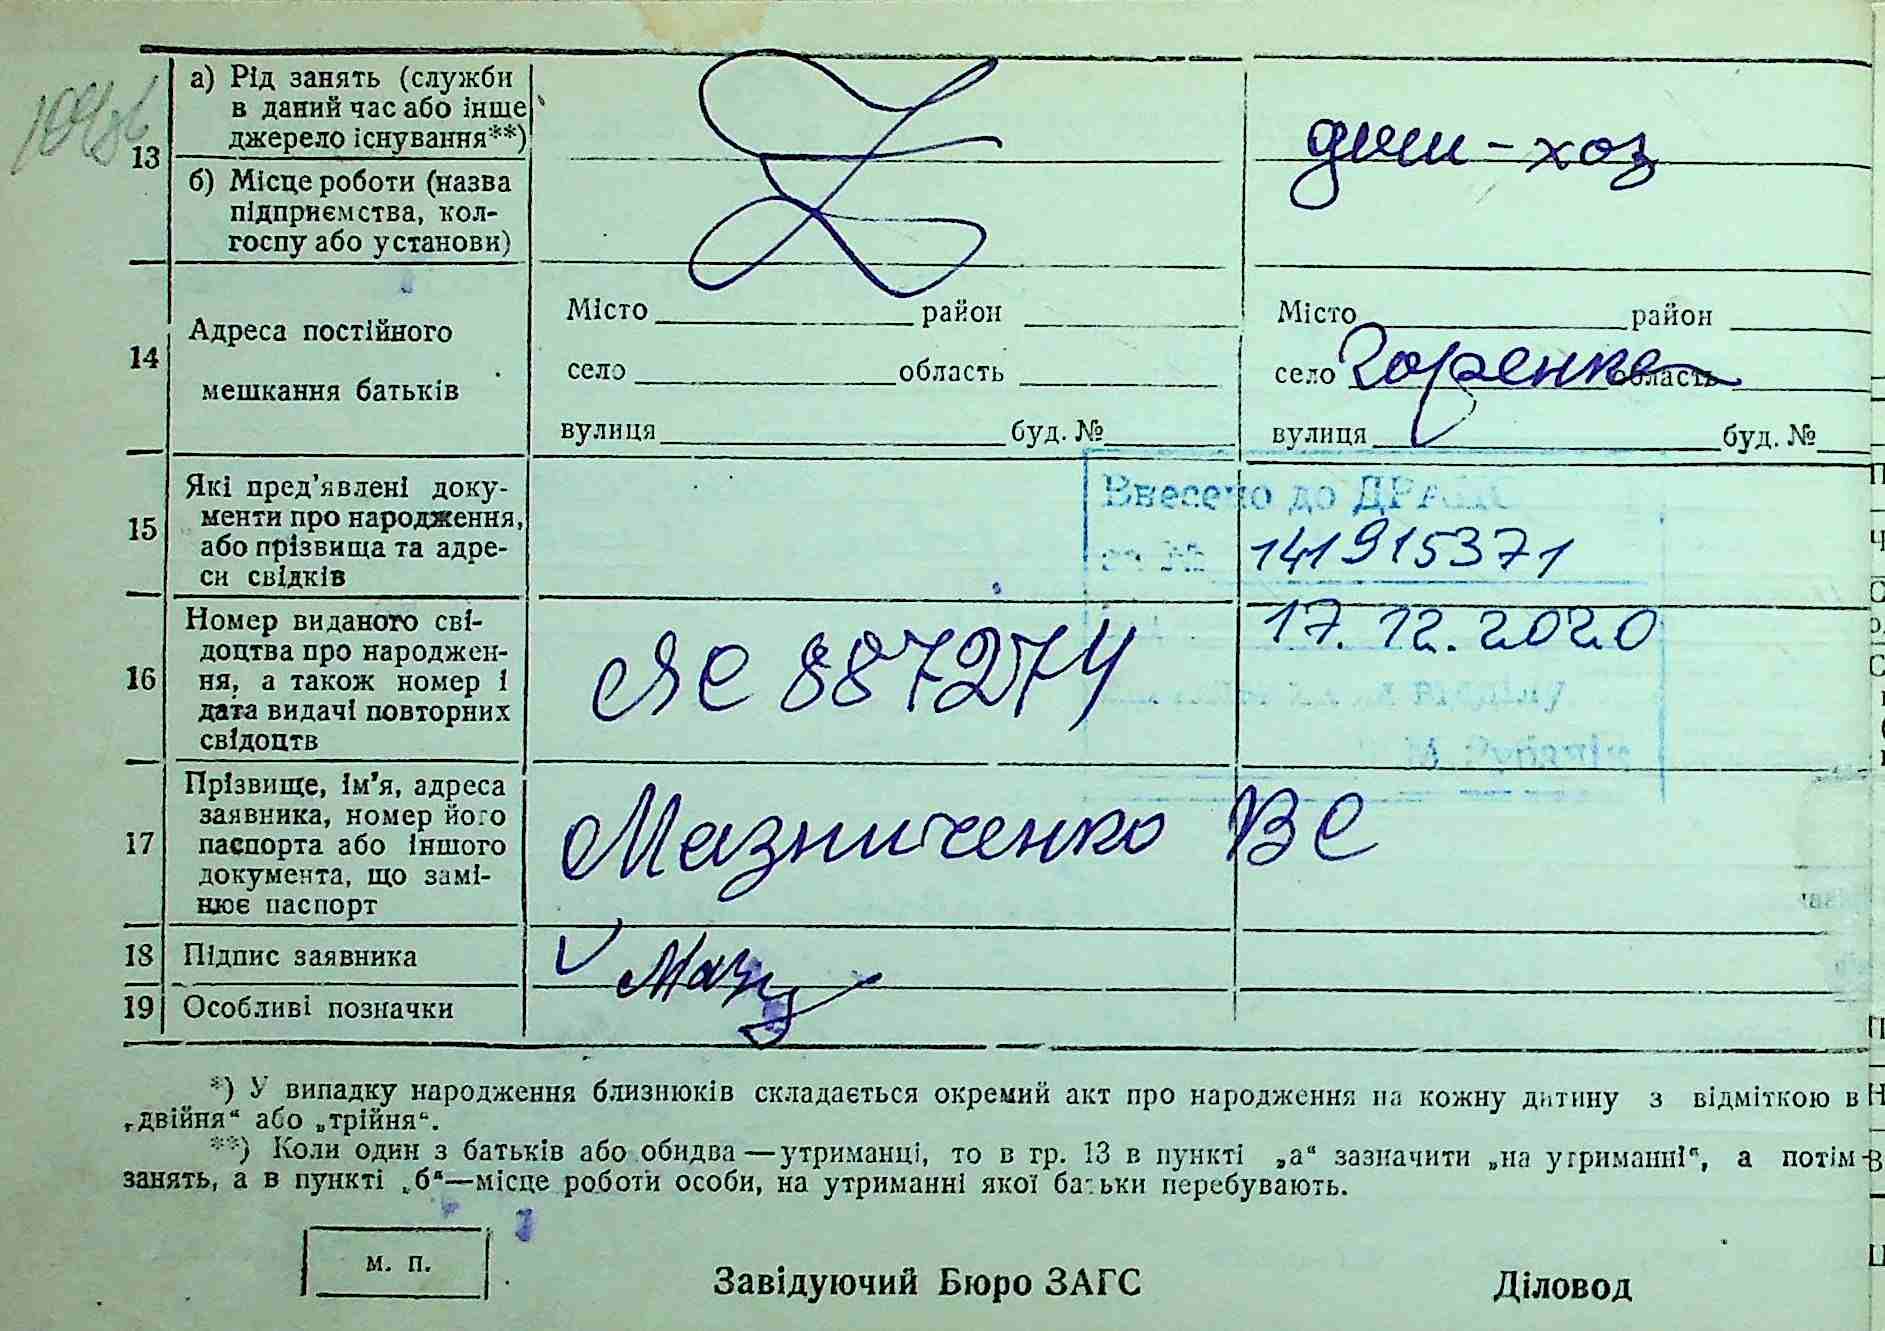 13
а) Рід занять (служби
в даний час або інше
джерело існування**)
дом-хоз
б) Місце роботи (назва
підприємства, кол-
госпу або установи)
14
Адреса постійного
мешкання батьків
Місто район
село область
вулиця буд. №
Місто район
село Горенка область
вулиця буд. №
15
Які пред'явлені доку-
менти про народження,
або прізвища та адре-
си свідків
Внесено до ДРАЦС
за № 141915371
17.12.2020
відділу
16
Номер виданого сві-
доцтва про народжен-
ня, а також номер і
дата видачі повторних
свідоцтв
ЯС 887274
17
Прізвище, ім'я, адреса
заявника, номер його
паспорта або іншого
документа, що замі-
нює паспорт
Мазниченко ВС
18 Підпис заявника
Маз
19 Особливі позначки
*) У випадку народження близнюків складається окремий акт про народження на кожну дитину з відміткою в
„двійня“ або „трійня“.
**) Коли один з батьків або обидва—утриманці, то в гр. 13 в пункті „а“ зазначити „на утриманні“, а потім
занять, а в пункті „б“—місце роботи особи, на утриманні якої батьки перебувають.
м. п.
Завідуючий Бюро ЗАГС Діловод